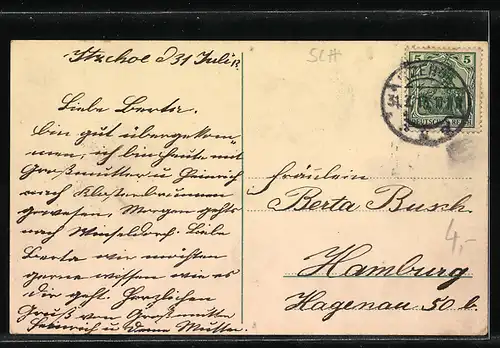 Itzehoe d 31 Juli 13.
Liebe Berta.
bin gut übergekom-
men, ich bin heute mit
Großmutter u Heinrich
nach Klosterbrunnen
gewesen, Morgen gehts
nach Winseldorf. Liebe
Berta wir möchten
gerne wissen wie es
dir geht. Herzlichen
Gruß von Großmutter
Heinrich u deine Mutter.
SLH
5 5
DEUTSCHES REICH
Fräulein
Berta Busch
4,-
Hamburg
Hagenau 50 b.